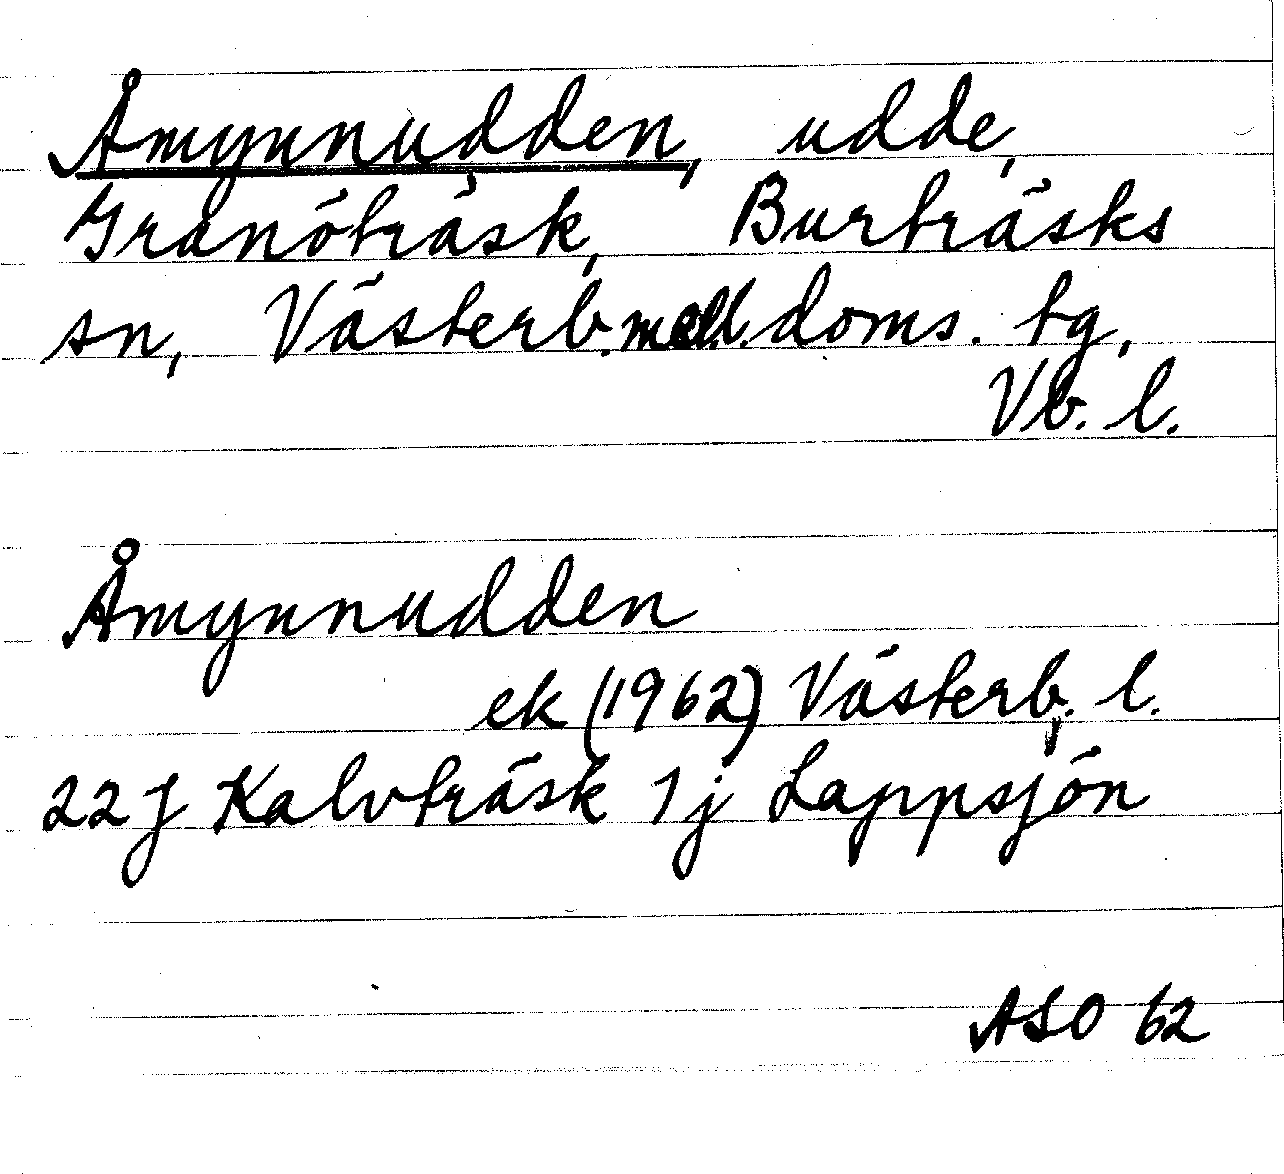 Åmynnudden, udde,
Granöträsk, Burträsks
sn, Västerb. mell. doms. tg,
Vb. l.
Åmynnudden
ek (1962) Västerb. l.
22 J Kalvträsk 1 j Lappsjön
ASO 62